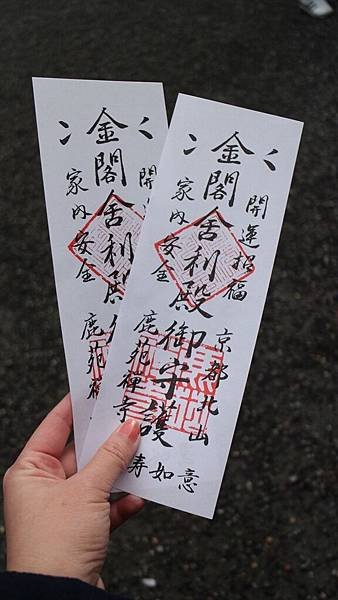 金閣舍利殿御守護
開運招福
家内安全
京都北山
鹿苑禅寺
寿如意
金閣舍利殿
開
家内安全
鹿苑禅